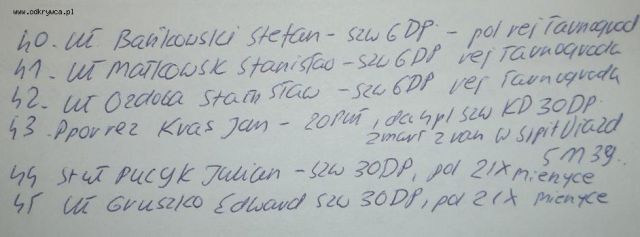 www.odkrywca.pl
40. uł Bańkowski Stefan - szw 6DP. - pol rej Tarnogrod
41. uł Matkowsk Stanisław - szw 6DP rej Tarnogroda
42. uł Ozdoba Stanisław - szw 6DP rej Tarnogroda
43. Ppor rez Kras Jan - 20 puł, da 4pl szw KD 30DP.
zmarł z ran w szpit Ujazd
5 IX 39.
44 st uł Pucyk Julian - szw 30DP, pol 2 IX mienyce
45 uł Gruszko Edward szw 30DP, pol 2 IX mienyce